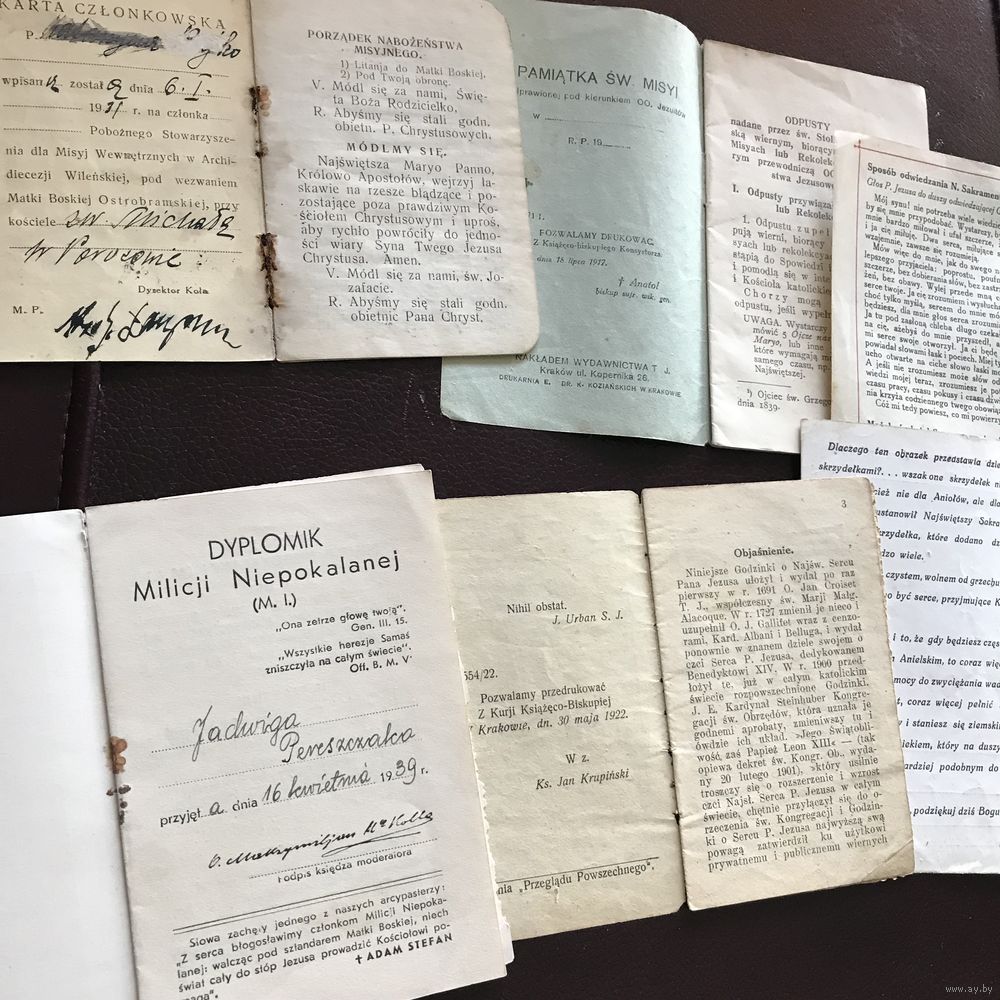 KARTA CZŁONKOWSKA
P.
wpisaną została dnia 6. I.
1931 r. na członka
Pobożnego Stowarzysze-
nia dla Misyj Wewnętrznych w Archi-
diecezji Wileńskiej, pod wezwaniem
Matki Boskiej Ostrobramskiej, przy
kościele św. Michała
w
Dyrektor Koła
M. P.
PORZĄDEK NABOŻEŃSTWA
MISYJNEGO.
1) Litanja do Matki Boskiej.
2) Pod Twoją obronę.
V. Módl się za nami, Świę-
ta Boża Rodzicielko,
R. Abyśmy się stali godn.
obietn. P. Chrystusowych.
MÓDLMY SIĘ.
Najświętsza Maryo Panno,
Królowo Apostołów, wejrzyj ła-
skawie na rzesze błądzące i po-
zostające poza prawdziwym Ko-
ściołem Chrystusowym i uproś,
aby rychło powróciły do jedno-
ści wiary Syna Twego Jezusa
Chrystusa. Amen.
V. Módl się za nami, św. Jo-
zafacie.
R. Abyśmy się stali godn.
obietnic Pana Chryst.
PAMIĄTKA ŚW. MISYI
odprawionej pod kierunkiem OO. Jezuitów
w
R. P. 19
POZWALAMY DRUKOWAĆ.
Z Książęco-biskupiego Konsystorza.
dnia 18 lipca 1917.
† Anatol
biskup sufr. wik. gen.
NAKŁADEM WYDAWNICTWA T. J.
Kraków ul. Kopernika 26.
DRUKARNIA E. DR. K. KOZIAŃSKICH W KRAKOWIE
ODPUSTY
nadane przez św. Stoli
ską wiernym, biorącym
Misyach lub Rekolek
rym przewodniczą OO
stwa Jezusowe
I. Odpusty przywiąza
lub Rekolek
1. Odpustu zupeł
pują wierni, biorący
syach lub rekolekcyach
stąpią do Spowiedzi i
i pomodlą się w inte
i Kościoła katolickie
Chorzy mogą
odpustu, jeśli wypełn
UWAGA. Wystarczy
mówić 5 Ojcze nasz
Maryo, lub inne
które wymagają mo
samego czasu, np.
Najświętszej.
¹) Ojciec św. Grzego
dnia 1839.
Sposób odwiedzania N. Sakrame
Głos P. Jezusa do duszy odwiedzającej G
Mój synu! nie potrzeba wiele wiedzie
by się mnie przypodobać. Wystarczy, by
mnie bardzo miłował i ufał szczerze,
i ja cię miłuję. Dwa serca, miłujące s
wzajemnie, zawsze się rozumieją.
Mów więc do mnie, jak do swego n
lepszego przyjaciela: poprostu, poufn
szczerze, bez dobierania słów, bez zastr
żeń, bez obawy. Wylej przede mną c
serce twoje. Ja cię zrozumiem i wysłucha
choć tylko myślą, sercem do mnie mó
będziesz, dla mnie głos serca zrozum
Ja tu pod zasłoną chleba długo czekał
na cię, ażebyś do mnie przyszedł, a
mi serce swoje otworzył. Ja ci będę
powiadał słowami łask i pociech. Miej ty
ucho otwarte na ciche słowo łaski mo
A jeśli nie zrozumiesz może słów o
wiedzi mojej teraz, zrozumiesz je po
czasu pracy, czasu pokusy i czasu dźwi
nia krzyża codziennego twego obowią
Cóż mi tedy powiesz, co mi powierzy
Dlaczego ten obrazek przedstawia dzie
skrzydełkami?... wszak one skrzydełek ni
cież nie dla Aniołów, ale dla
ustanowił Najświętszy Sakra
krzydełka, które dodano dz
dzo wiele.
czystem, wolnem od grzechu
o być serce, przyjmujące K
i to, że gdy będziesz częs
Anielskim, to coraz więc
mocy do zwyciężania wad
, coraz więcej pełnić
y i staniesz się ziemskim
iekiem, który na duszy
ardziej podobnym do
, podziękuj dziś Bogu
DYPLOMIK
Milicji Niepokalanej
(M. I.)
„Ona zetrze głowę twoją".
Gen. III. 15.
„Wszystkie herezje Samaś
zniszczyła na całym świecie".
Off. B. M. V.
Jadwiga
Pereszczaka
przyjęta dnia 16 kwietnia 1939 r.
O. Maksymiljan Mª Kolbe
Podpis księdza moderatora
Słowa zachęty jednego z naszych arcypasterzy:
„Z serca błogosławimy członkom Milicji Niepoka-
lanej: walcząc pod sztandarem Matki Boskiej, niech
świat cały do stóp Jezusa prowadzić Kościołowi po-
maga".
† ADAM STEFAN
Nihil obstat.
J. Urban S. J.
554/22.
Pozwalamy przedrukować
Z Kurji Książęco-Biskupiej
Krakowie, dn. 30 maja 1922.
W z.
Ks. Jan Krupiński
nia „Przeglądu Powszechnego".
3
Objaśnienie.
Niniejsze Godzinki o Najśw. Sercu
Pana Jezusa ułożył i wydał po raz
pierwszy w r. 1691 O. Jan Croiset
T. J., współczesny św. Marji Małg.
Alacoque. W r. 1727 zmienił je nieco i
uzupełnił O. J. Gallifet wraz z cenzo-
rami, Kard. Albani i Belluga, i wydał
ponownie w znanem dziele swojem o
czci Serca P. Jezusa, dedykowanem
Benedyktowi XIV. W r. 1900 przed-
łożył te, już w całym katolickim
świecie rozpowszechnione Godzinki,
J. E. Kardynał Steinhuber Kongre-
gacji św. Obrzędów, która uznała je
godnemi aprobaty, zmieniwszy tu i
ówdzie ich układ. »Jego Świątobli-
wość, zaś Papież Leon XIII« — (tak
opiewa dekret św. Kongr. Ob., wyda-
ny 20 lutego 1901), »który usilnie
troszczy się o rozszerzenie i wzrost
czci Najsł. Serca P. Jezusa w całym
świecie, chętnie przyłączył się do o-
rzeczenia św. Kongregacji i Godzin-
ki o Sercu P. Jezusa najwyższą swą
powagą zatwierdził ku użytkowi
prywatnemu i publicznemu wiernych
www.ay.by